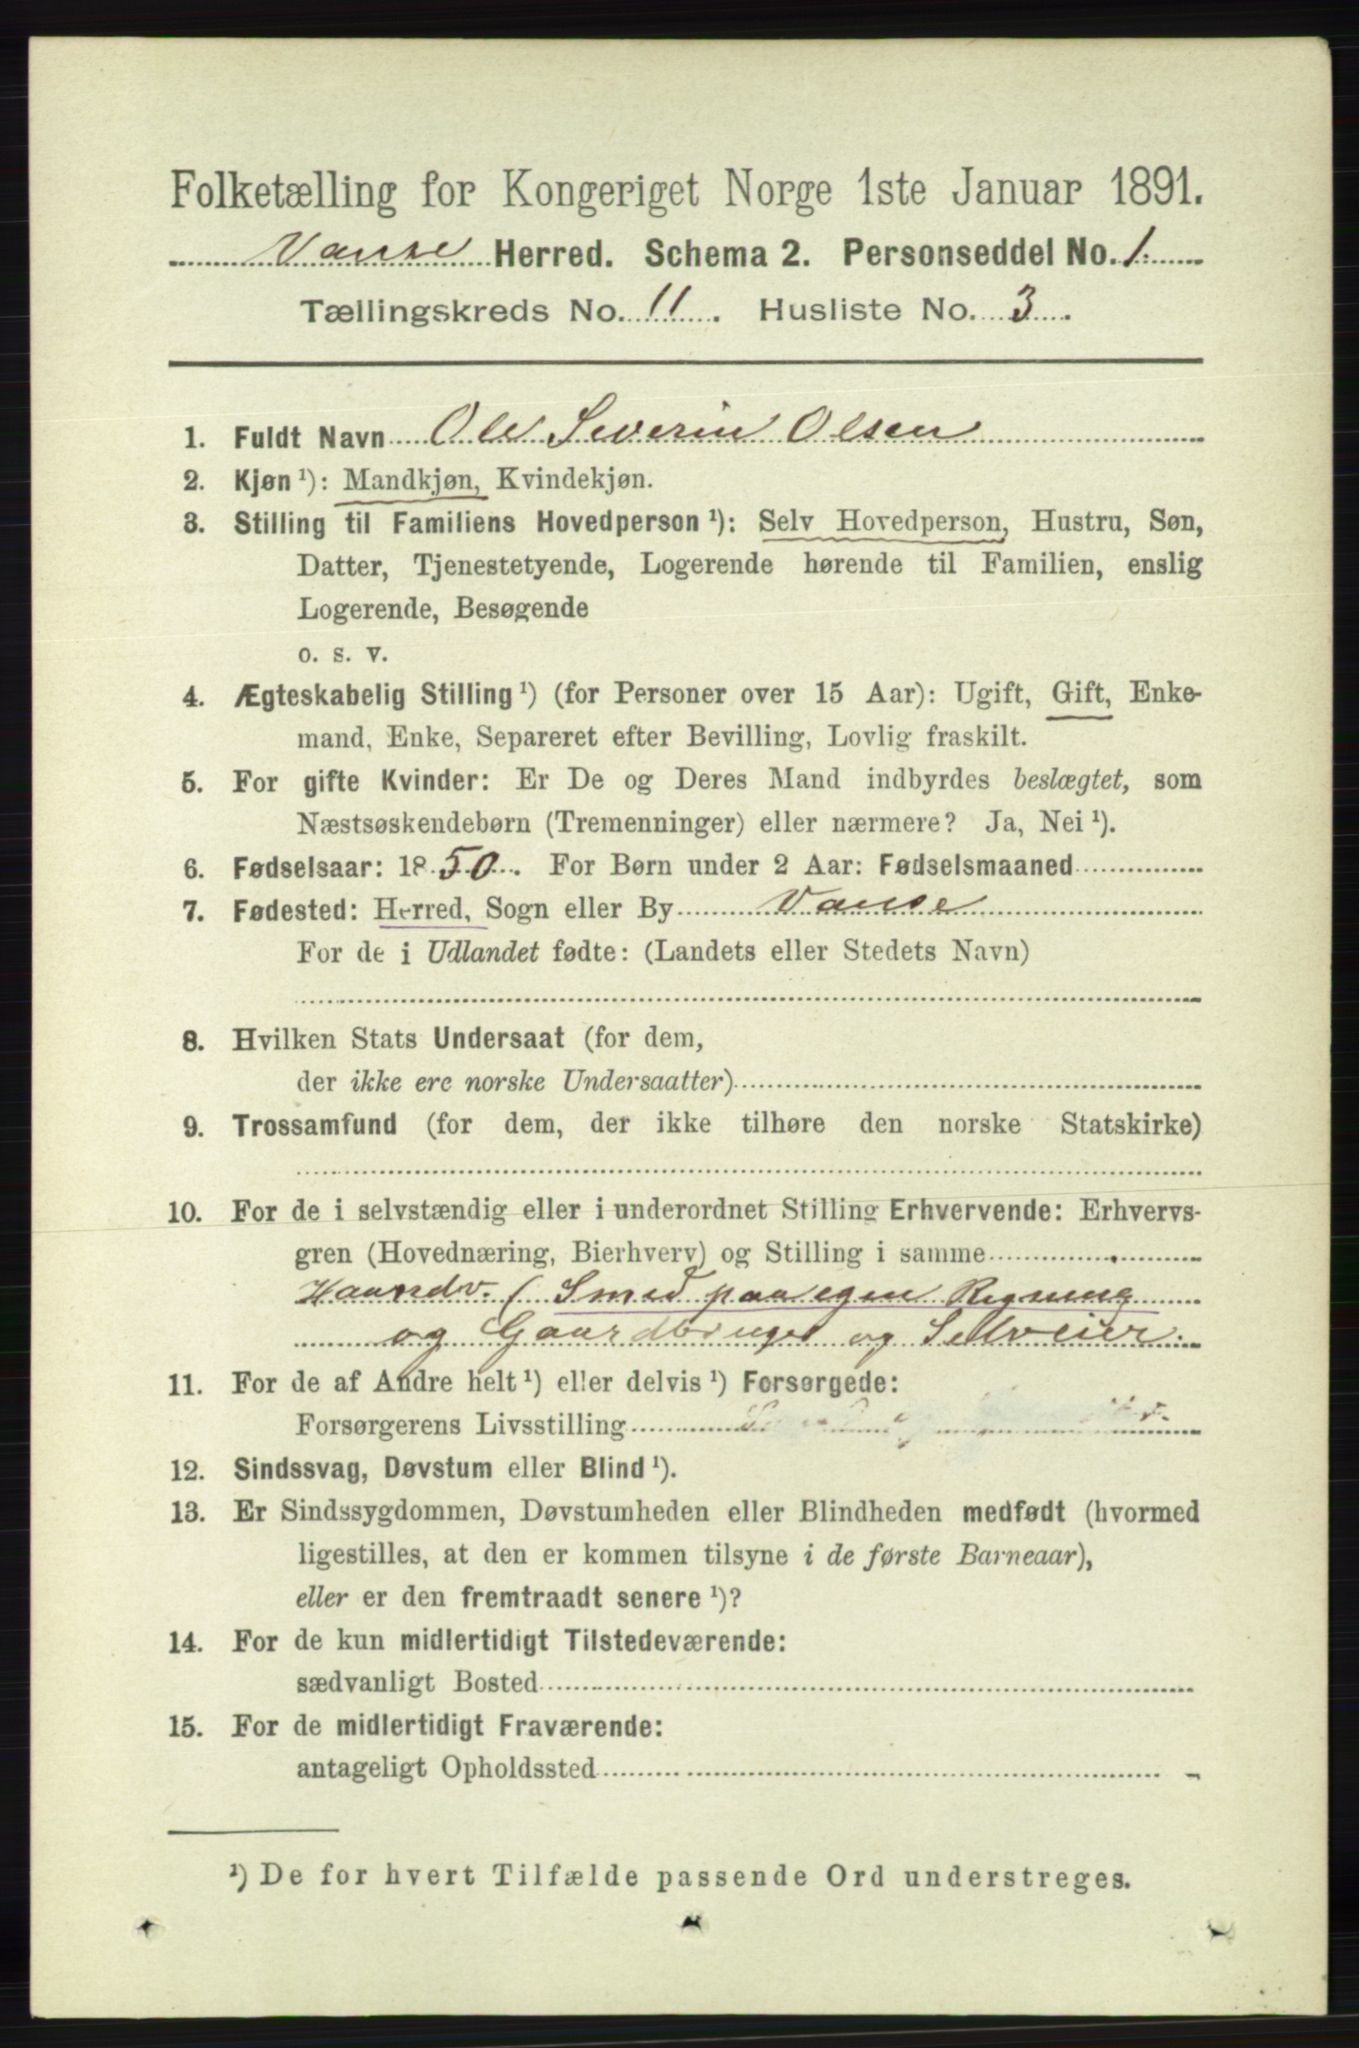 Folketælling for Kongeriget Norge 1ste Januar 1891.
Vanse Herred. Schema 2. Personseddel No. 1.
Tællingskreds No. 11. Husliste No. 3.
1. Fuldt Navn Ole Severin Olsen
2. Kjøn ¹): Mandkjøn, Kvindekjøn.
3. Stilling til Familiens Hovedperson ¹): Selv Hovedperson, Hustru, Søn,
Datter, Tjenestetyende, Logerende hørende til Familien, enslig
Logerende, Besøgende
o. s. v.
4. Ægteskabelig Stilling ¹) (for Personer over 15 Aar): Ugift, Gift, Enke-
mand, Enke, Separeret efter Bevilling, Lovlig fraskilt.
5. For gifte Kvinder: Er De og Deres Mand indbyrdes beslægtet, som
Næstsøskendebørn (Tremenninger) eller nærmere? Ja, Nei ¹).
6. Fødselsaar: 1850. For Børn under 2 Aar: Fødselsmaaned
7. Fødested: Herred, Sogn eller By Vanse
For de i Udlandet fødte: (Landets eller Stedets Navn)
8. Hvilken Stats Undersaat (for dem,
der ikke ere norske Undersaatter)
9. Trossamfund (for dem, der ikke tilhøre den norske Statskirke)
10. For de i selvstændig eller i underordnet Stilling Erhvervende: Erhvervs-
gren (Hovednæring, Bierhverv) og Stilling i samme
Haandv. ( Smed paa egen Regning
og Gaardbruger og Selveier.
11. For de af Andre helt ¹) eller delvis ¹) Forsørgede:
Forsørgerens Livsstilling
12. Sindssvag, Døvstum eller Blind ¹).
13. Er Sindssygdommen, Døvstumheden eller Blindheden medfødt (hvormed
ligestilles, at den er kommen tilsyne i de første Barneaar),
eller er den fremtraadt senere ¹)?
14. For de kun midlertidigt Tilstedeværende:
sædvanligt Bosted
15. For de midlertidigt Fraværende:
antageligt Opholdssted
¹) De for hvert Tilfælde passende Ord understreges.